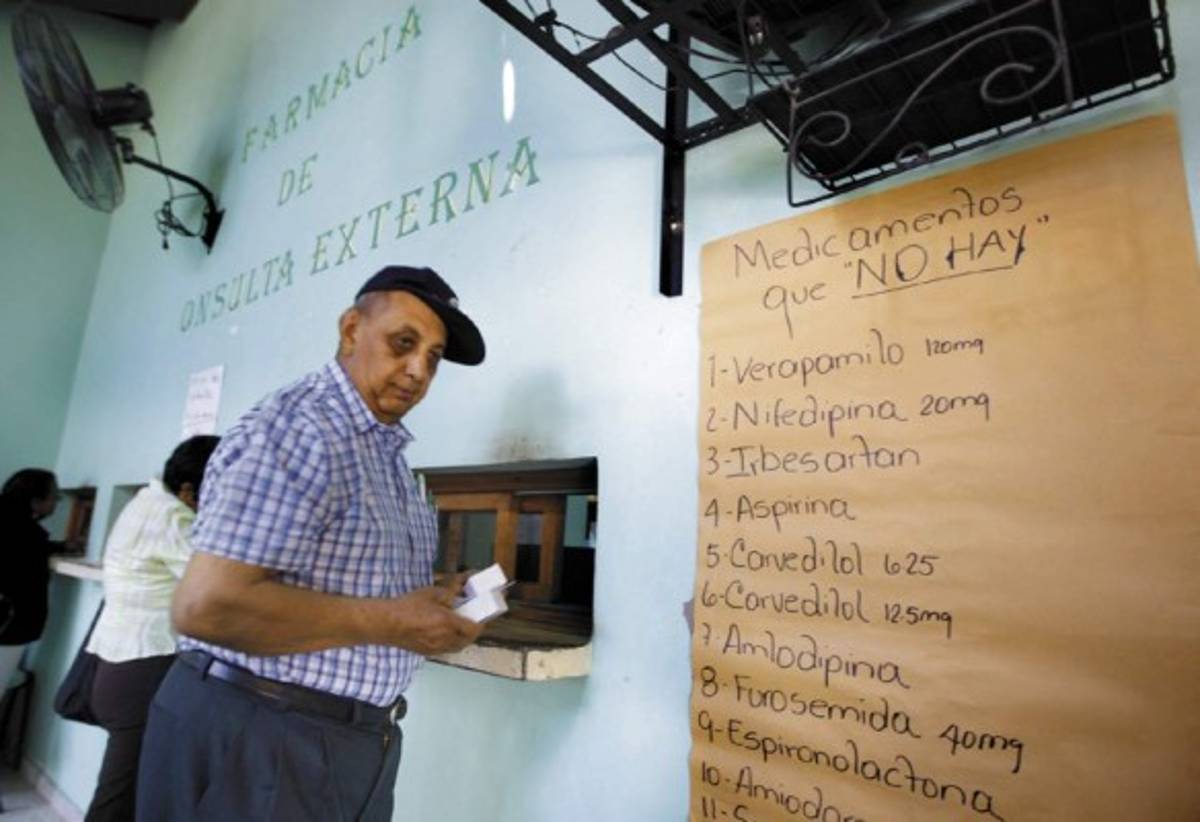 FARMACIA
DE
ONSULTA EXTERNA
Medicamentos
que "NO HAY"
1-Verapamilo 120mg
2-Nifedipina 20mg
3-Irbesartan
4-Aspirina
5-Carvedilol 625
6-Carvedilol 12.5mg
7-Amlodipina
8-Furosemida 40mg
9-Espironolactona
10-Amiodar
11-S